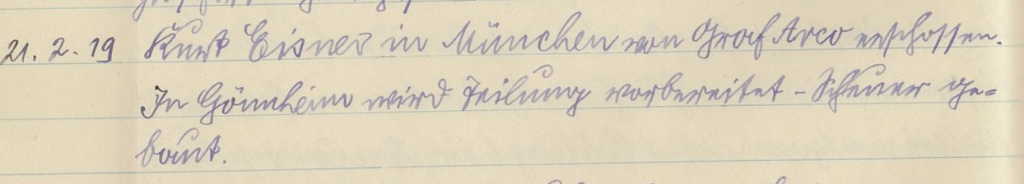 21. 2. 19 Kurt Eisner in München von Graf Arco erschossen.
In Gönnheim wird Teilung vorbereitet - Scheuer ge=
baut.